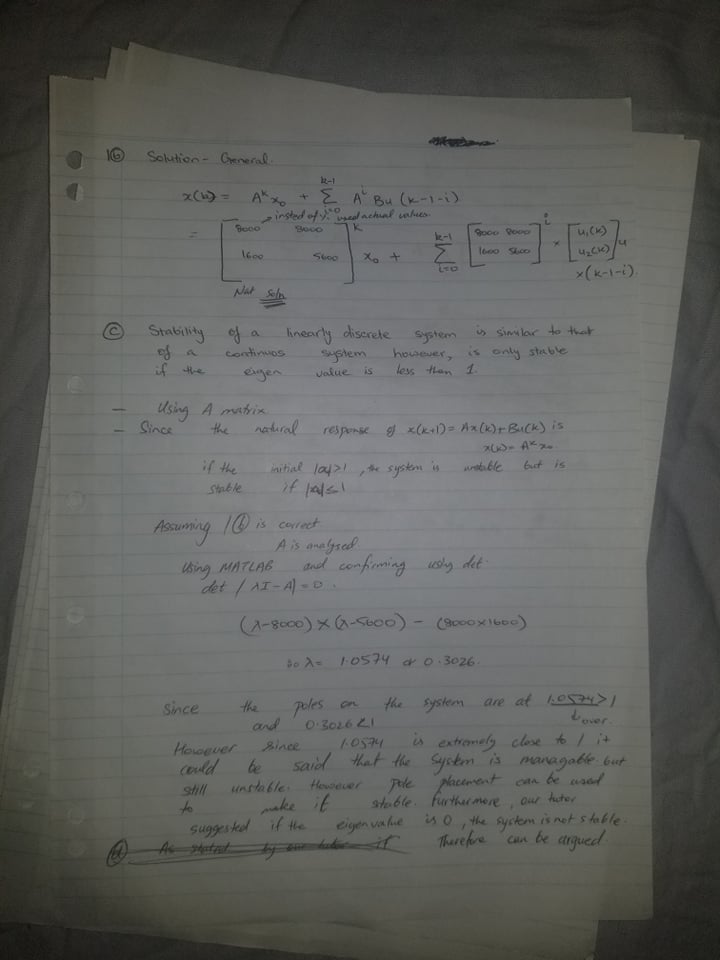 1(b) Solution - General.
x(k) = A^k x₀ + Σ_{i=0}^{k-1} A^i Bu (k-1-i)
insted of % used actual values.
= [8000 8000; 1600 5600]^k x₀ + Σ_{i=0}^{k-1} [8000 8000; 1600 5600]^i × [u₁(k); u₂(k)] u × (k-1-i)
Nat Soln
(c) Stability of a linearly discrete system is similar to that
of a continuos system however, is only stable
if the eigen value is less than 1.
- Using A matrix
- Since the natural response of x(k+1) = Ax(k) + Bu(k) is
x(k) = A^k x₀
if the initial |a|>1, the system is unstable but is
stable if |a|≤1
Assuming 1(b) is correct
A is analysed.
Using MATLAB and confirming using det.
det |λI - A| = 0.
(λ-8000) × (λ-5600) - (8000×1600)
So λ = 1.0574 or 0.3026.
Since the poles on the system are at 1.0574>1
over.
and 0.3026<1
However since 1.0574 is extremely close to 1 it
could be said that the system is managable but
still unstable. However pole placement can be used
to make it stable. Furthermore, our tutor
suggested if the eigenvalue is 0, the system is not stable.
Therefore can be argued.
(d) As stated by our tutor if